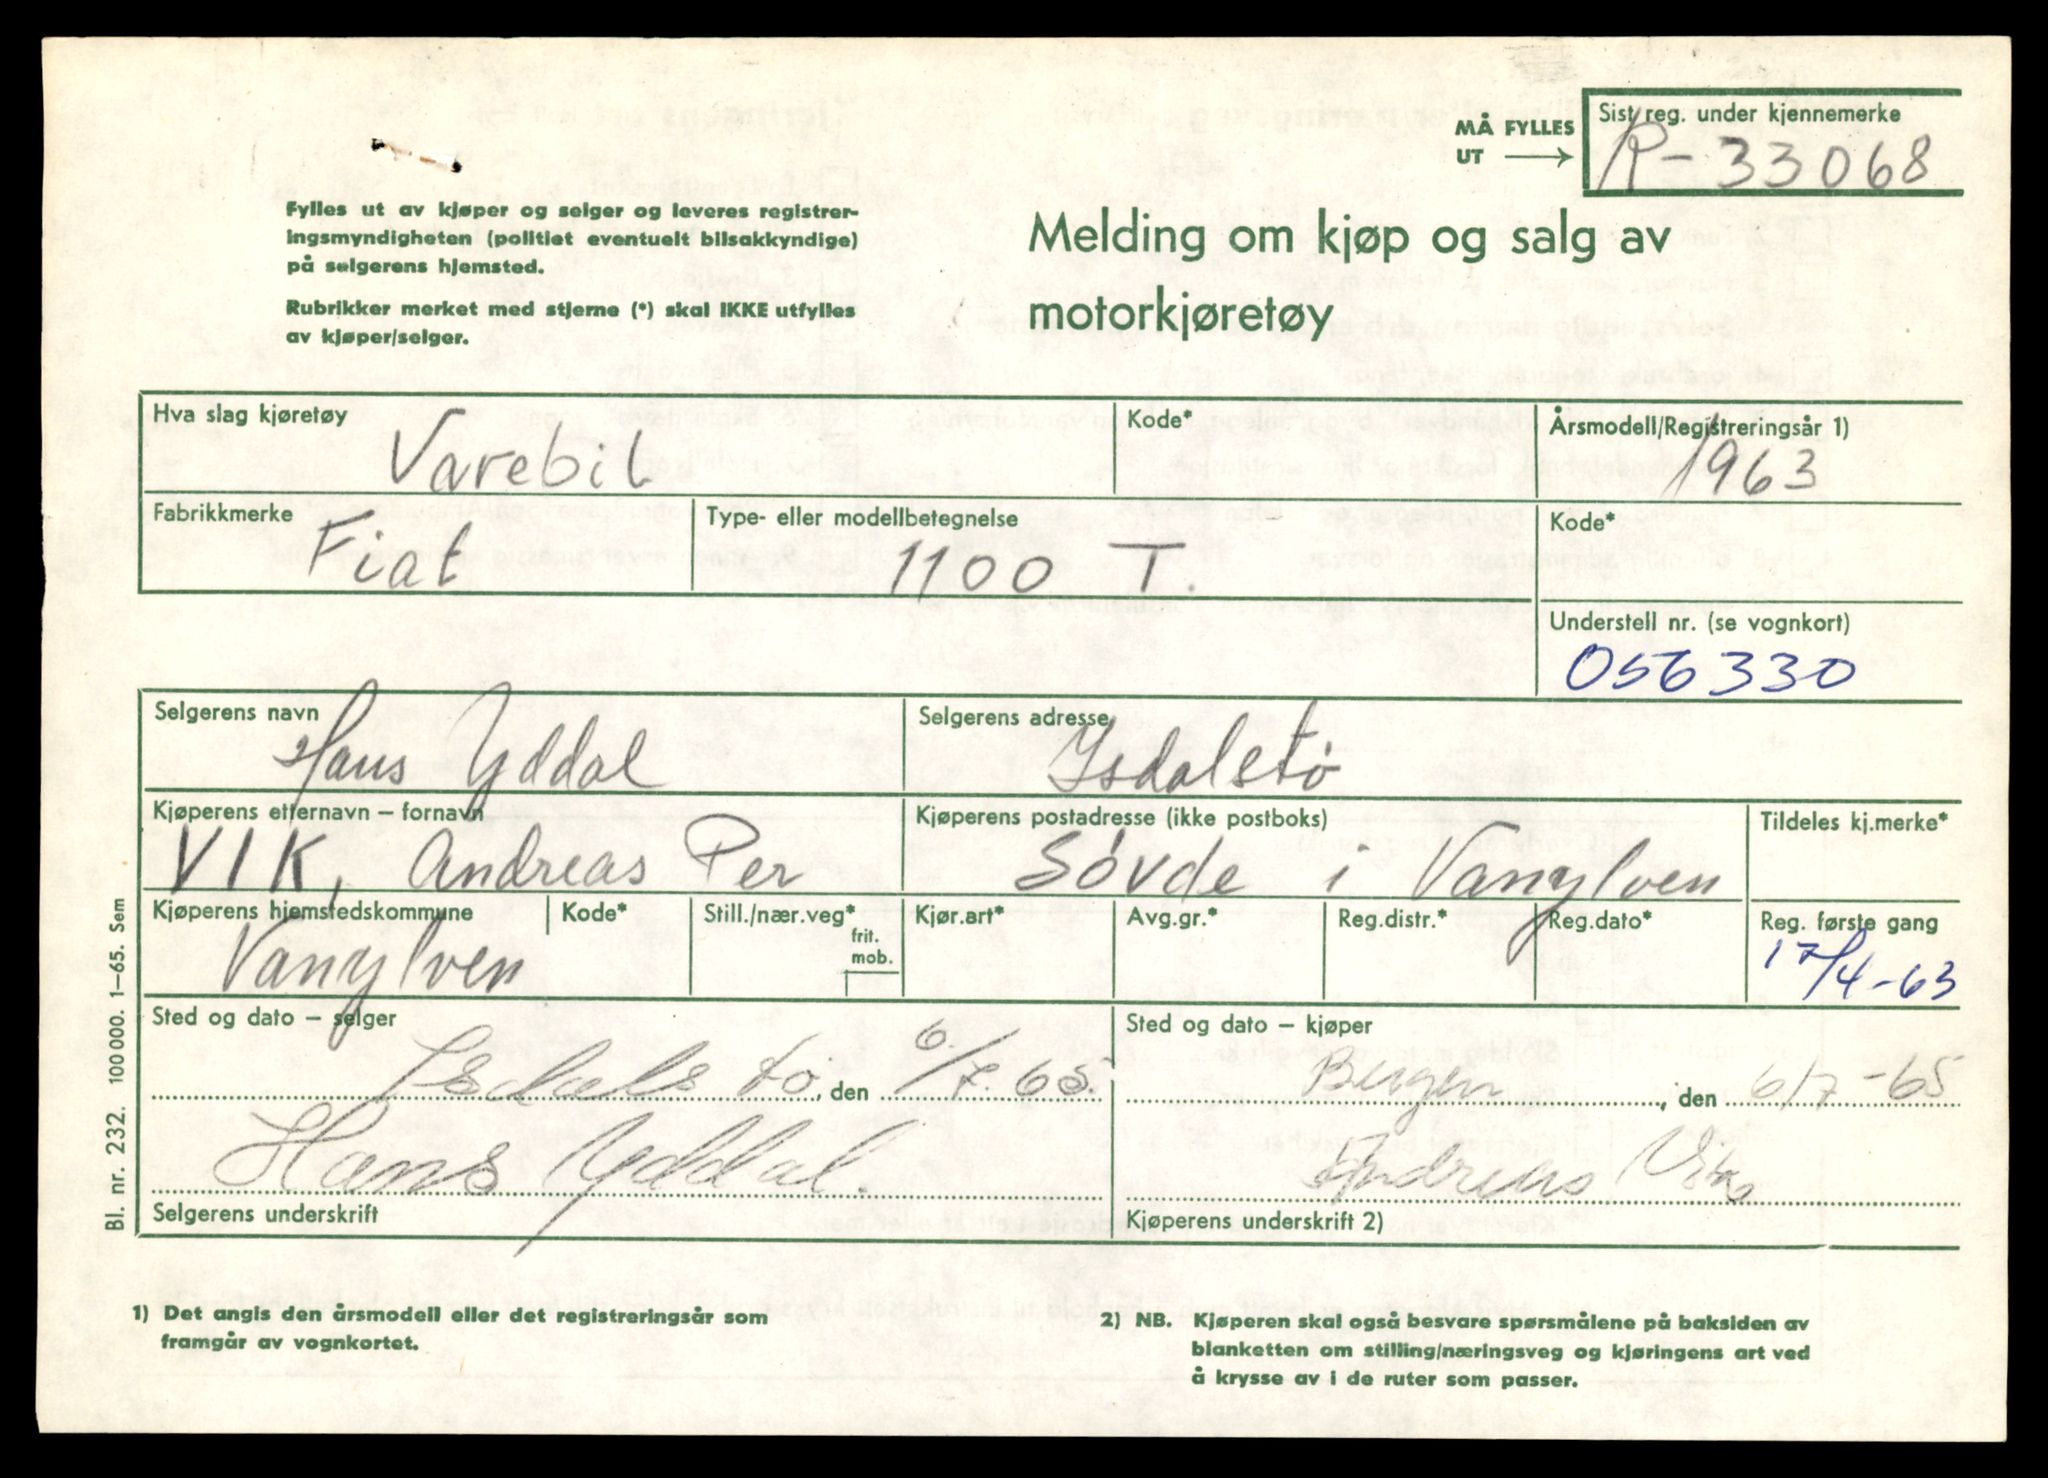 MÅ FYLLES
UT
Sist reg. under kjennemerke
R-33068
Fylles ut av kjøper og selger og leveres registrer-
ingsmyndigheten (politiet eventuelt bilsakkyndige)
på selgerens hjemsted.
Rubrikker merket med stjerne (*) skal IKKE utfylles
av kjøper/selger.
Melding om kjøp og salg av
motorkjøretøy
Hva slag kjøretøy
Varebil
Kode*
Årsmodell/Registreringsår 1)
1963
Fabrikkmerke
Fiat
Type- eller modellbetegnelse
1100 T.
Kode*
Understell nr. (se vognkort)
056330
Selgerens navn
Hans Yddal
Selgerens adresse
Isdalstø
Kjøperens etternavn – fornavn
VIK, Andreas Per
Kjøperens postadresse (ikke postboks)
Søvde i Vanylven
Tildeles kj.merke*
Kjøperens hjemstedskommune
Vanylven
Kode*
Still./nær.veg*
frit.
mob.
Kjør.art*
Avg.gr.*
Reg.distr.*
Reg.dato*
Reg. første gang
17/4-63
Sted og dato – selger
Isdalstø, den 6./7.65.
Hans Yddal.
Selgerens underskrift
Sted og dato – kjøper
Bergen, den 6/7-65
Andreas Vik
Kjøperens underskrift 2)
Bl. nr. 232. 100 000. 1–65. Sem
1) Det angis den årsmodell eller det registreringsår som
framgår av vognkortet.
2) NB. Kjøperen skal også besvare spørsmålene på baksiden av
blanketten om stilling/næringsveg og kjøringens art ved
å krysse av i de ruter som passer.